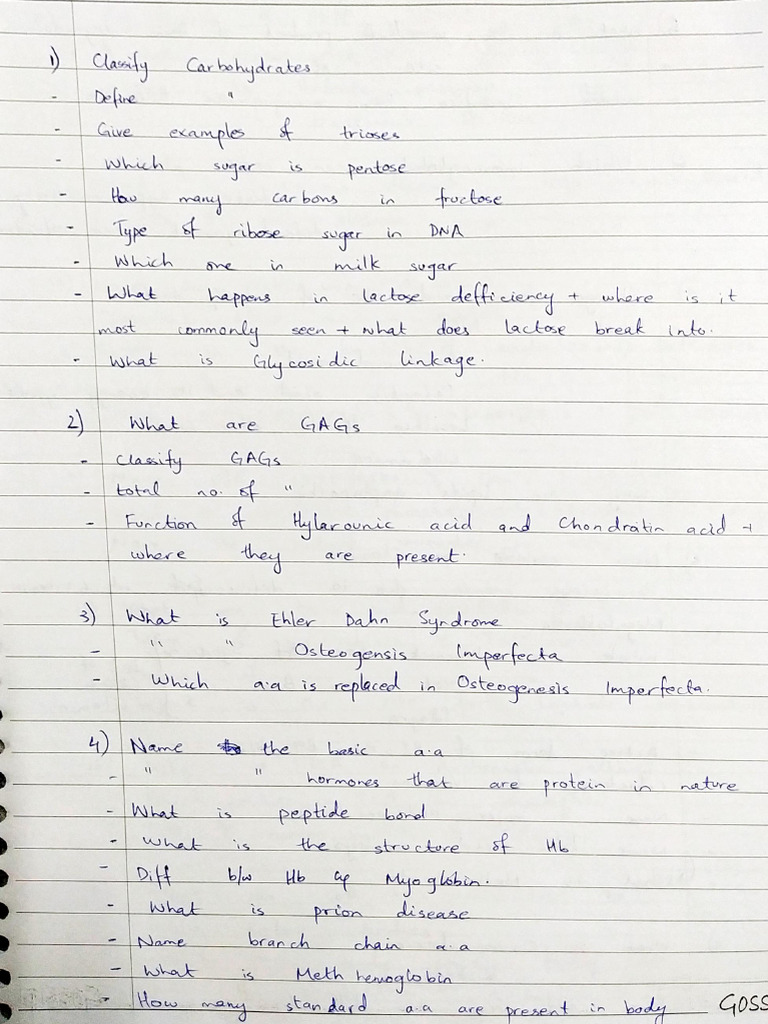 1) Classify Carbohydrates
- Define "
- Give examples of trioses
- Which sugar is pentose
- How many carbons in fructose
- Type of ribose sugar in DNA
- Which one in milk sugar
- What happens in lactose defficiency + where is it
most commonly seen + what does lactose break into.
- What is Glycosidic linkage.
2) What are GAGs
- Classify GAGs
- total no. of "
- Function of Hylarounic acid and Chondratin acid +
where they are present.
3) What is Ehler Dahn Syndrome
- " " Osteogensis Imperfecta
- Which a.a is replaced in Osteogenesis Imperfecta.
4) Name the basic a.a
- " " hormones that are protein in nature
- What is peptide bond
- What is the structure of Hb
- Diff b/w Hb & Myoglobin.
- What is prion disease
- Name branch chain a.a
- What is Meth hemoglobin
- How many standard a.a are present in body GOSS